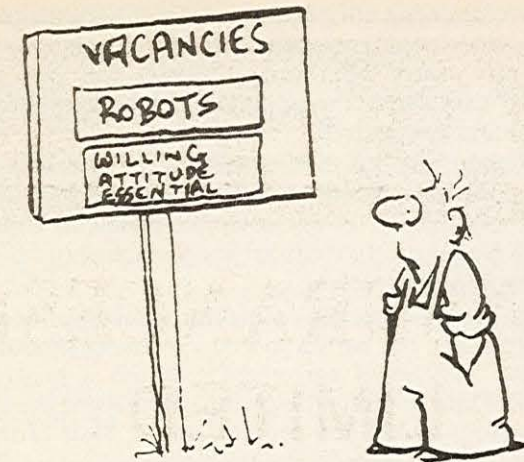 VACANCIES
ROBOTS
WILLING
ATTITUDE
ESSENTIAL